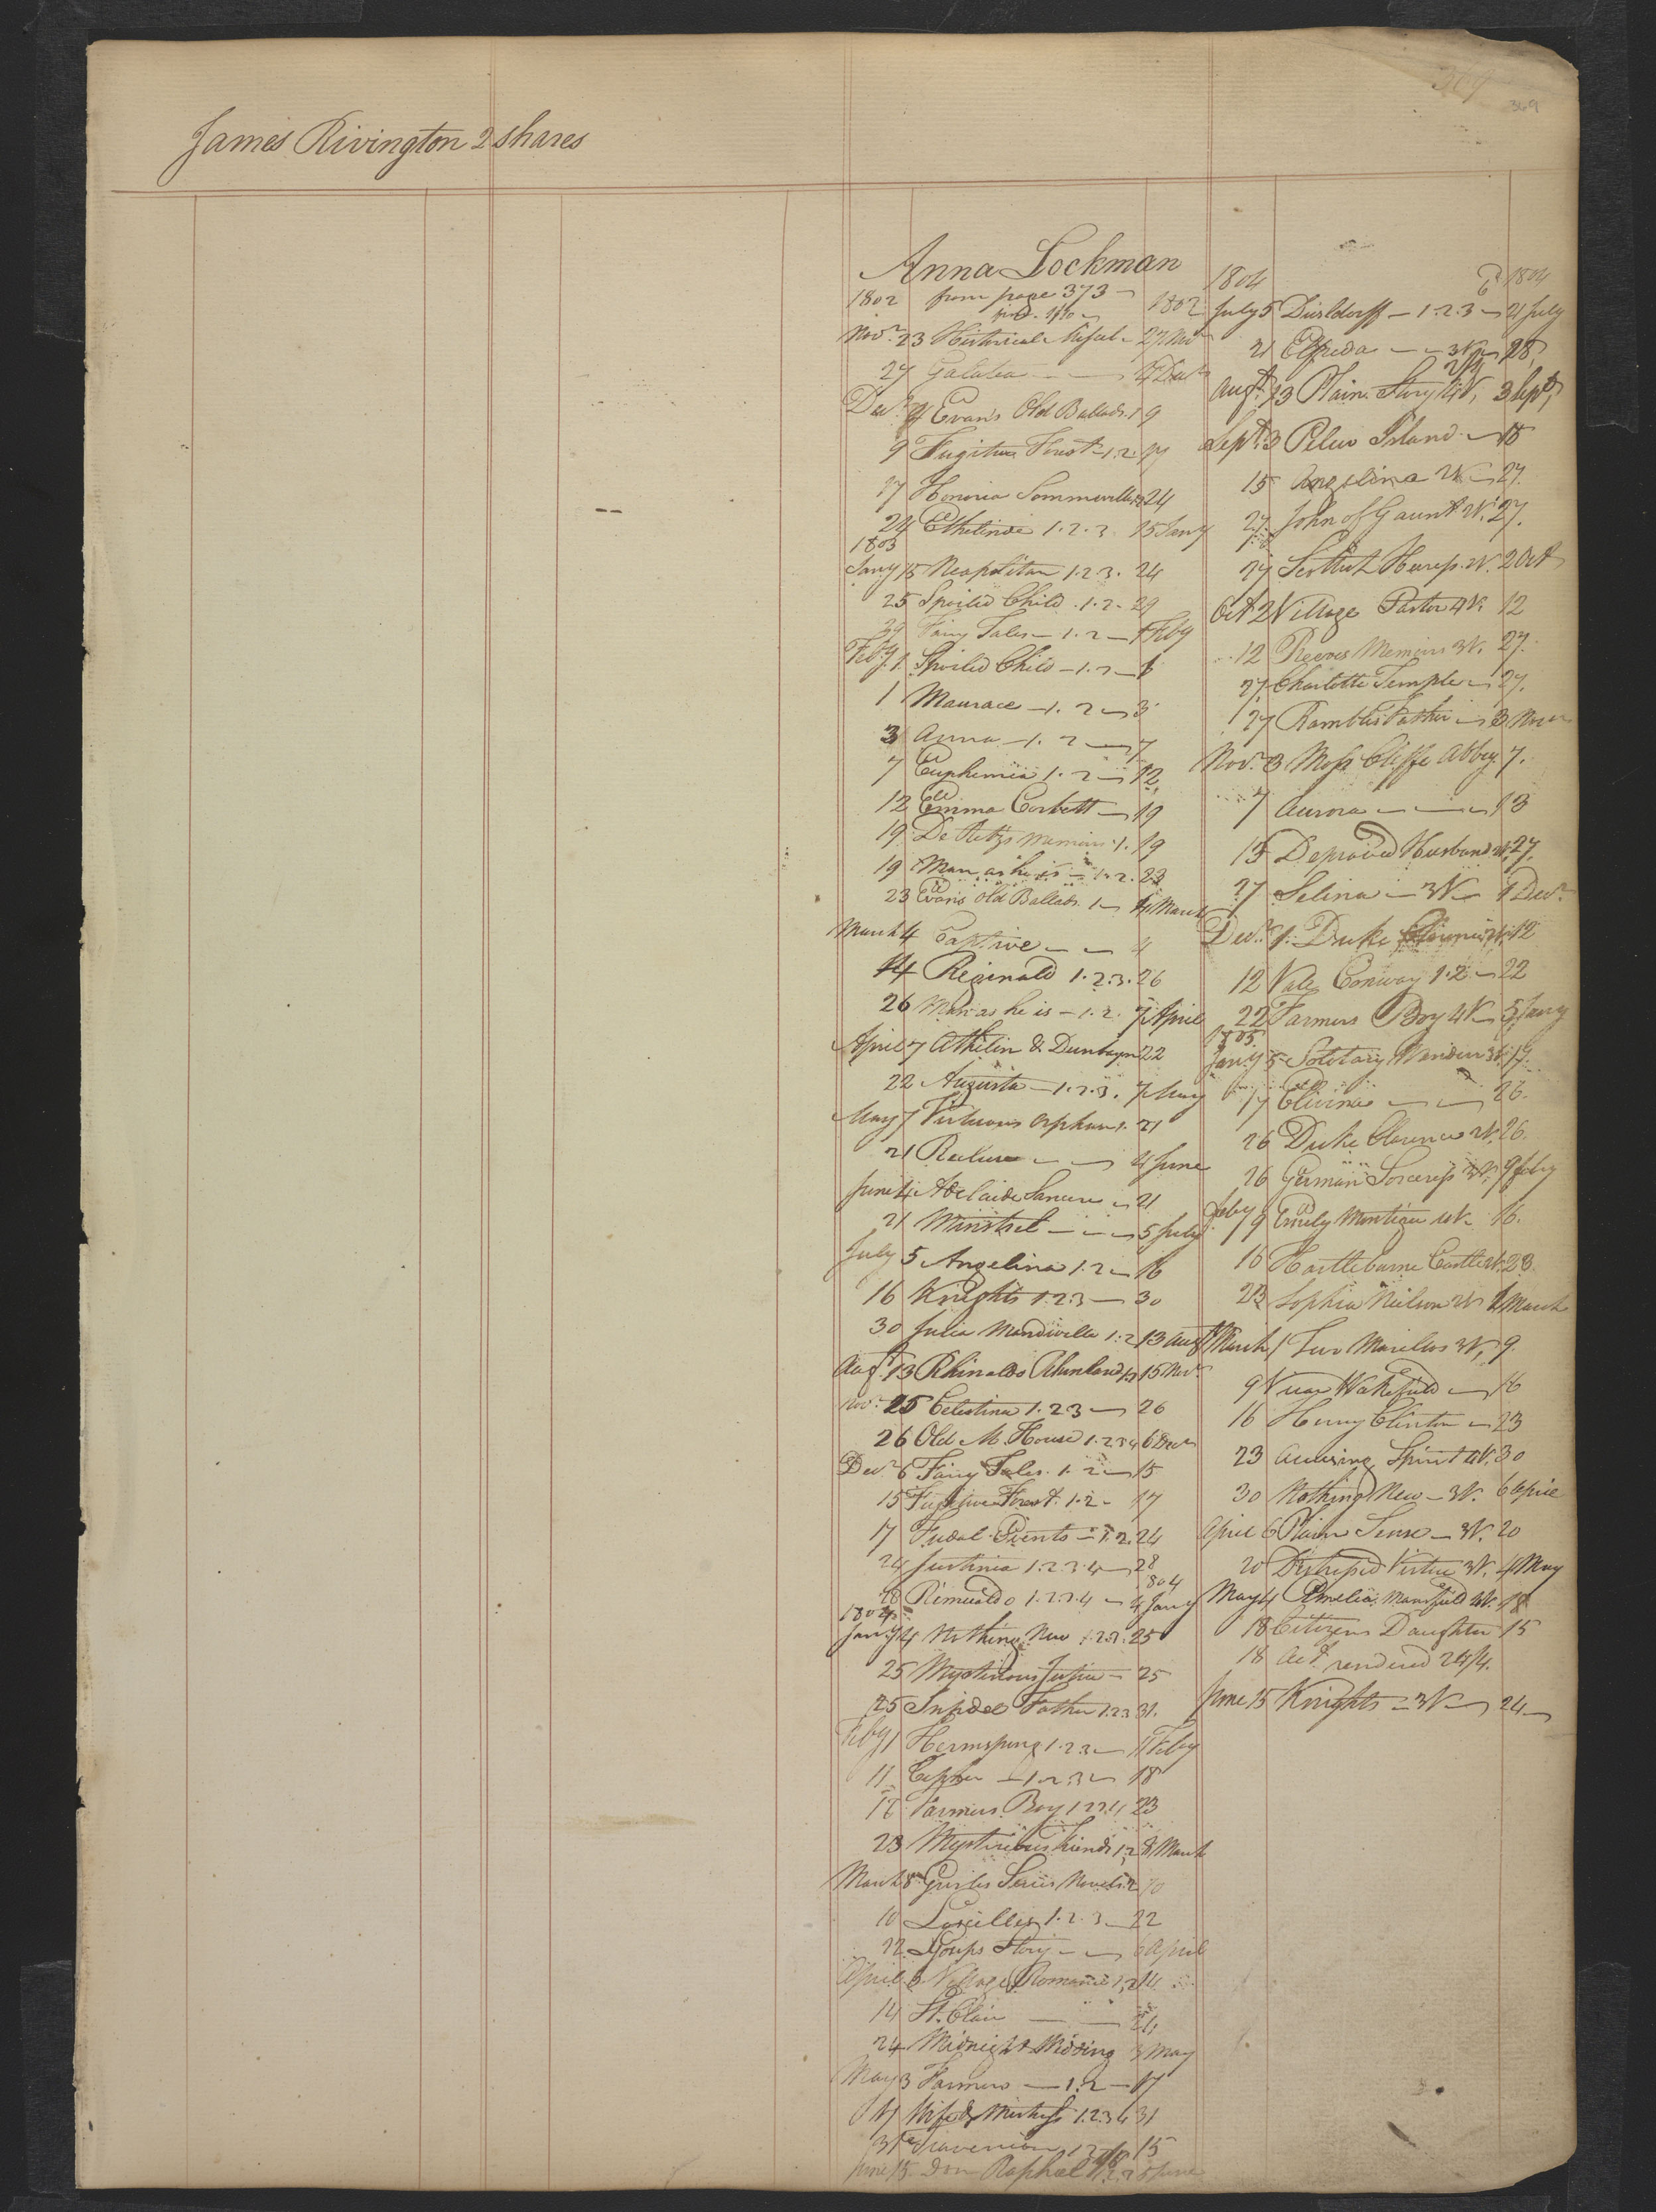 369
369
James Rivington 2 shares
Anna Lockman
1802 from page 373 1802
Novr 23 Historical 27 Novr
27 Galatea 4 Decr
Decr 4 Evans Old Ballads 1 9
9 Fugitive Forest 1.2 17
17 Honoria Sommerville 24
24 Ethelinde 1.2.3. 15 Jany
1803
Jany 15 Neapolitan 1.2.3. 24
25 Spoiled Child .1.2. 29
29 Fairy Tales 1.2 1 Feby
Feby 1 Spoiled Child 1.2
1 Maurace 1.2 3
3 Anna 1.2 7
7 Euphemia 1.2 12
12 Emma Corbett 19
19 De Retzs Memoirs 1. 19
19 Man as he is 1.2. 23
23 Evans Old Ballads 1 4 March
March 4 Captive 4
14 Reginald 1.2.3. 26
26 Man as he is 1.2. 7 April
April 7 Athlin & Dunbayn 22
22 Augusta 1.2.3. 7 May
May 7 Virtuous Orphan 1. 21
21 Recluse 4 June
June 4 Adelaide 21
21 Minstrel 5 July
July 5 Angelina 1.2 16
16 Knights 1.2.3 30
30 Julia Mandiville 1.2 13 Augt
Augt 13 Rhinaldo 15 Novr
Novr 25 Celestina 1.2.3 26
26 Old M. House 1.2.3.4 6 Decr
Decr 6 Fairy Tales. 1.2 15
15 Fugitive Forest. 1.2 17
17 Fudal Events 1.2. 24
24 Justinia 1.2.3.4 28
28 Rimualdo 1.2.3.4 1804 4 Jany
1804
Jany 4 Nothing New 1.2.3. 25
25 Mysterious 25
25 Infidel Father 1.2.3 31.
Feby 1 Hermsprong 1.2.3 11 Feby
11 1.2.3 18
18 Farmers Boy 1.2.3.4 23
23 Mysterious Friends 1.2 8 March
March 8 Novels 10
10 1.2.3 22
22 Gossips Story 6 April
April 6 Village Romance 1.2 14
14 St. Clair 24
24 Midnight Wedding 3 May
May 3 Farmers 1.2 17
17 Wife & Mistress 1.2.3.4 31
31 15
June 15 Don Raphael June
1804 1804
July 5 Dusldorff 1.2.3 21 July
21 Elfrida 3V 28
Augt 13 Plain Story 4V, 3 Sept,
Sept. 3 Pelew Island 15
15 Angelina 2V 27.
27 John of Gaunt 2V. 27.
27 Scottish 2V. 2 Oct
Oct 2 Village Pastor 4V. 12
12 Reeves Memoirs 3V. 27.
27 Charlotte Temple 27.
27 Rambles Father 3 Novr
Novr 3 Moss Cliffe Abbey 7.
7 Aurora 13
13 Depraved Husband 2V. 27.
27 Selina 3V 1 Decr
Decr 1 Duke Clarence 2V. 12
12 Vale Conway 1.2 22
22 Farmers Boy 4V 5 Jany
1805
Jany 5 Solotary Wanderer 3V. 17.
17 Elivina 26.
26 Duke Clarence 2V. 26.
26 German Sorceress 3V. 9 Feby
Feby 9 Emily Montigue 4V. 16.
16 Hartlebourne Castle 2V. 23.
23 Sophia 2V 1 March
March 1 Two Marillus 3V, 9.
9 Vicar Wakefield 16
16 Henry Clinton 23
23 Accusing Spirit 4V. 30
30 Nothing New 3V. 6 April
April 6 Plain Sense 3V. 20
20 Distressed Virtue 3V. 4 May
May 4 Amelia Mansfield 4V. 18
18 Citizens Daughter 15
18 Act rendered 24/4.
June 15 Knights 3V 24